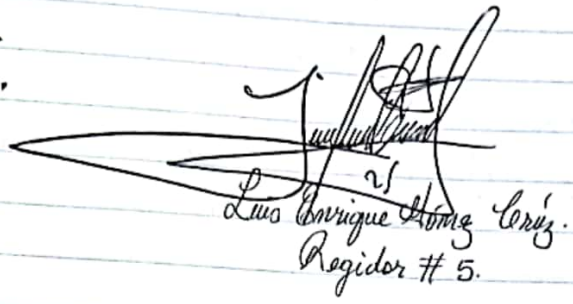 Luis Enrique Gómez Crúz.
Regidor # 5.